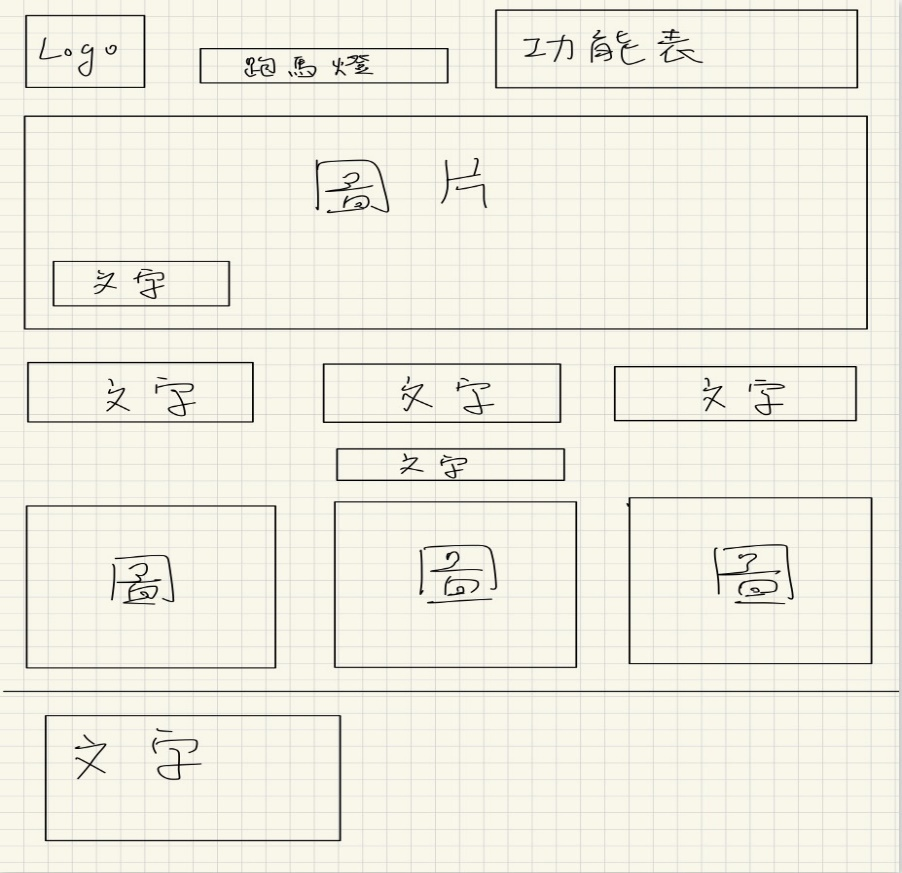 Logo
跑馬燈
功能表
圖片
文字
文字
文字
文字
文字
圖
圖
圖
文字